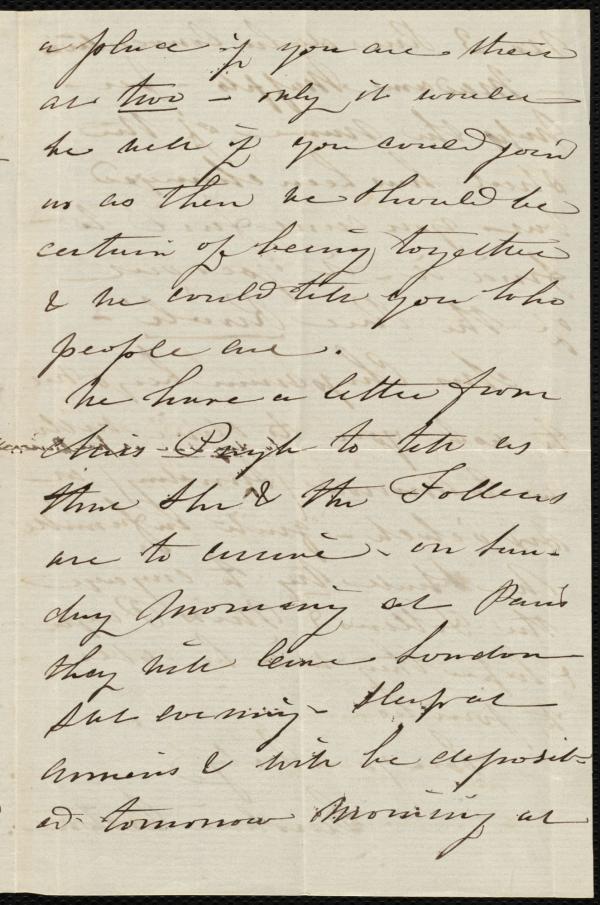 a place if you are there
at two – only it would
be well if you could join
us as then we should be
certain of being together
& we could tell you who
people are.
We have a letter from
Miss Pugh to tell us
that she & the Follens
are to arrive – on Sun-
day morning at Paris
they will leave London
Sat evening – sleep at
Amiens & will be deposit-
ed tomorrow morning at